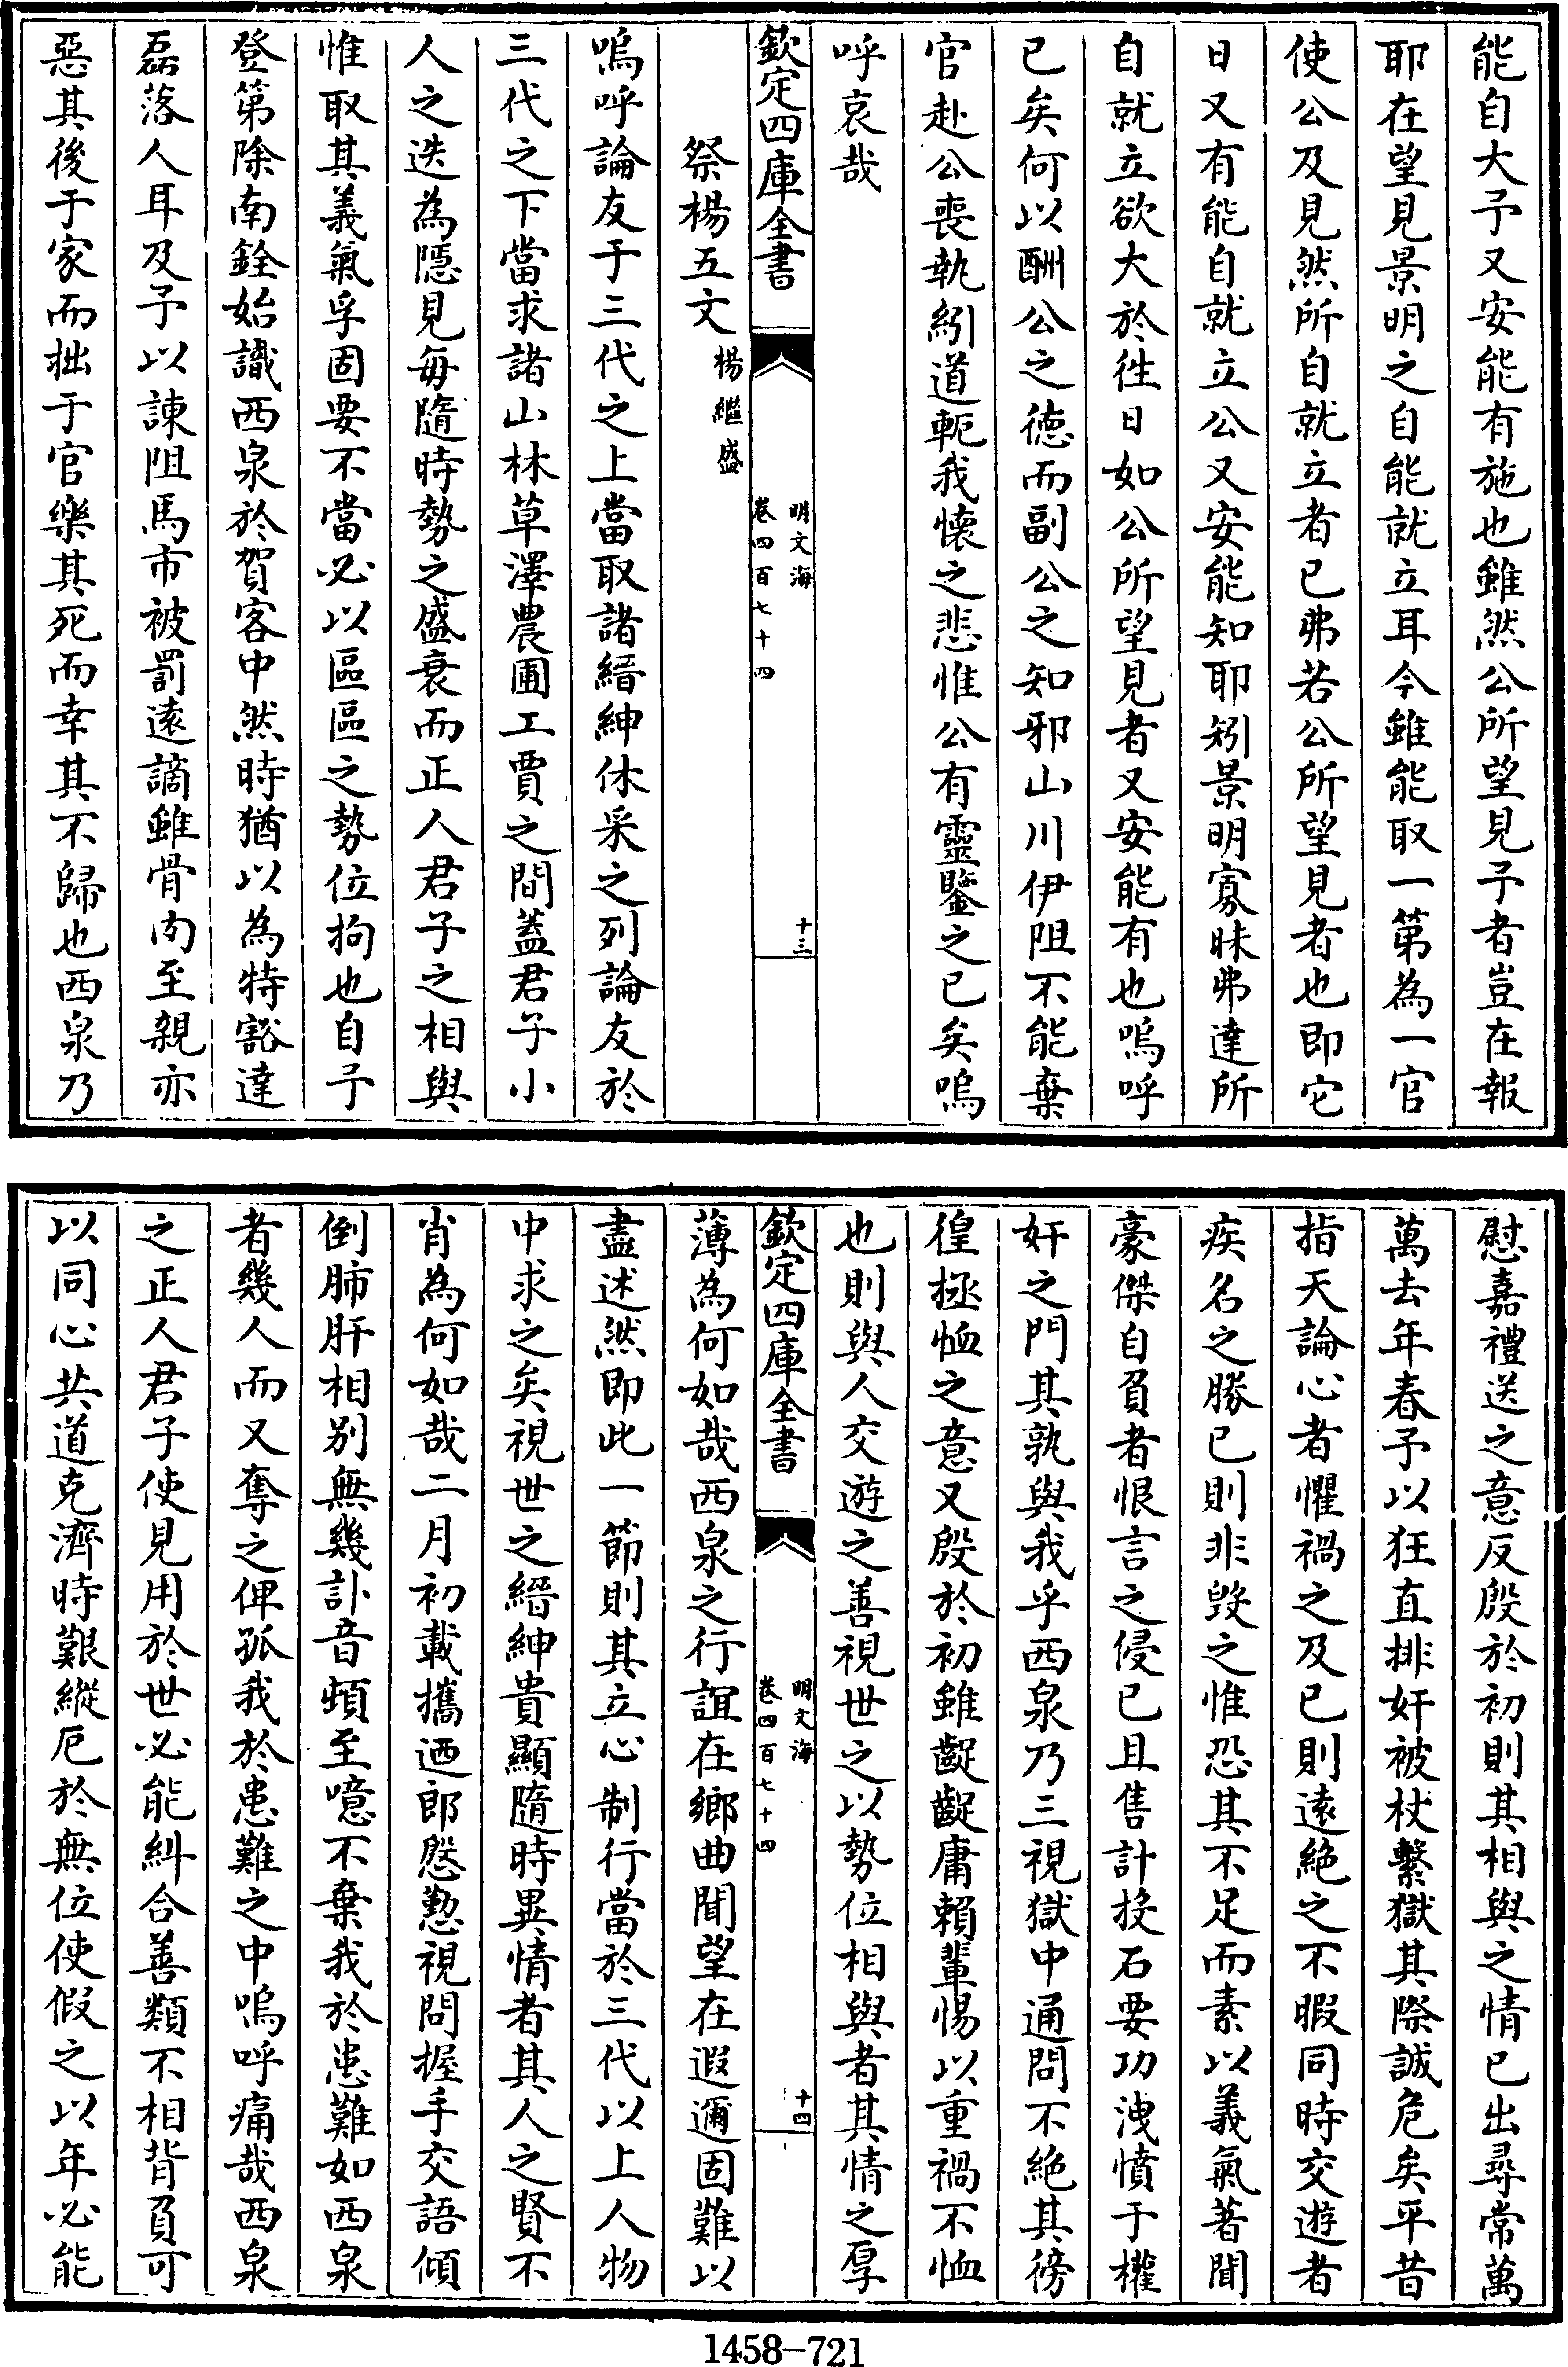 能自大予又安能有施也雖然公所望見予者豈在報
耶在望見景明之自能就立耳今雖能取一第為一官
使公及見然所自就立者已弗若公所望見者也即它
日又有能自就立公又安能知耶矧景明寡昧弗達所
自就立欲大於徃日如公所望見者又安能有也嗚呼
已矣何以酬公之德而副公之知邪山川伊阻不能棄
官赴公喪執紖道軛我懷之悲惟公有靈鑒之已矣嗚
呼哀哉
欽定四庫全書
明文海
卷四百七十四
十三
祭楊五文
楊繼盛
嗚呼論友于三代之上當取諸縉紳休采之列論友於
三代之下當求諸山林草澤農圃工賈之間蓋君子小
人之迭為隱見每隨時勢之盛衰而正人君子之相與
惟取其義氣孚固要不當必以區區之勢位拘也自予
登第除南銓始識西泉於賀客中然時猶以為特豁達
磊落人耳及予以諫阻馬市被罰遠謫雖骨肉至親亦
惡其後于家而拙于官樂其死而幸其不歸也西泉乃
慰嘉禮送之意反殷於初則其相與之情已出尋常萬
萬去年春予以狂直排奸被杖繫獄其際誠危矣平昔
指天論心者懼禍之及已則遠絶之不暇同時交遊者
疾名之勝已則非毀之惟恐其不足而素以義氣著聞
豪傑自負者恨言之侵已且售計投石要功洩憤于權
奸之門其孰與我乎西泉乃三視獄中通問不絶其徬
徨拯恤之意又殷於初雖齷齪庸賴輩惕以重禍不恤
也則與人交遊之善視世之以勢位相與者其情之厚
欽定四庫全書
明文海
卷四百七十四
十四
薄為何如哉西泉之行誼在鄉曲聞望在遐邇固難以
盡述然即此一節則其立心制行當於三代以上人物
中求之矣視世之縉紳貴顯隨時異情者其人之賢不
肖為何如哉二月初載攜迺郎慇懃視問握手交語傾
倒肺肝相別無幾訃音頓至噫不棄我於患難如西泉
者幾人而又奪之俾孤我於患難之中嗚呼痛哉西泉
之正人君子使見用於世必能糾合善類不相背負可
以同心共道克濟時艱縱厄於無位使假之以年必能
1458-721